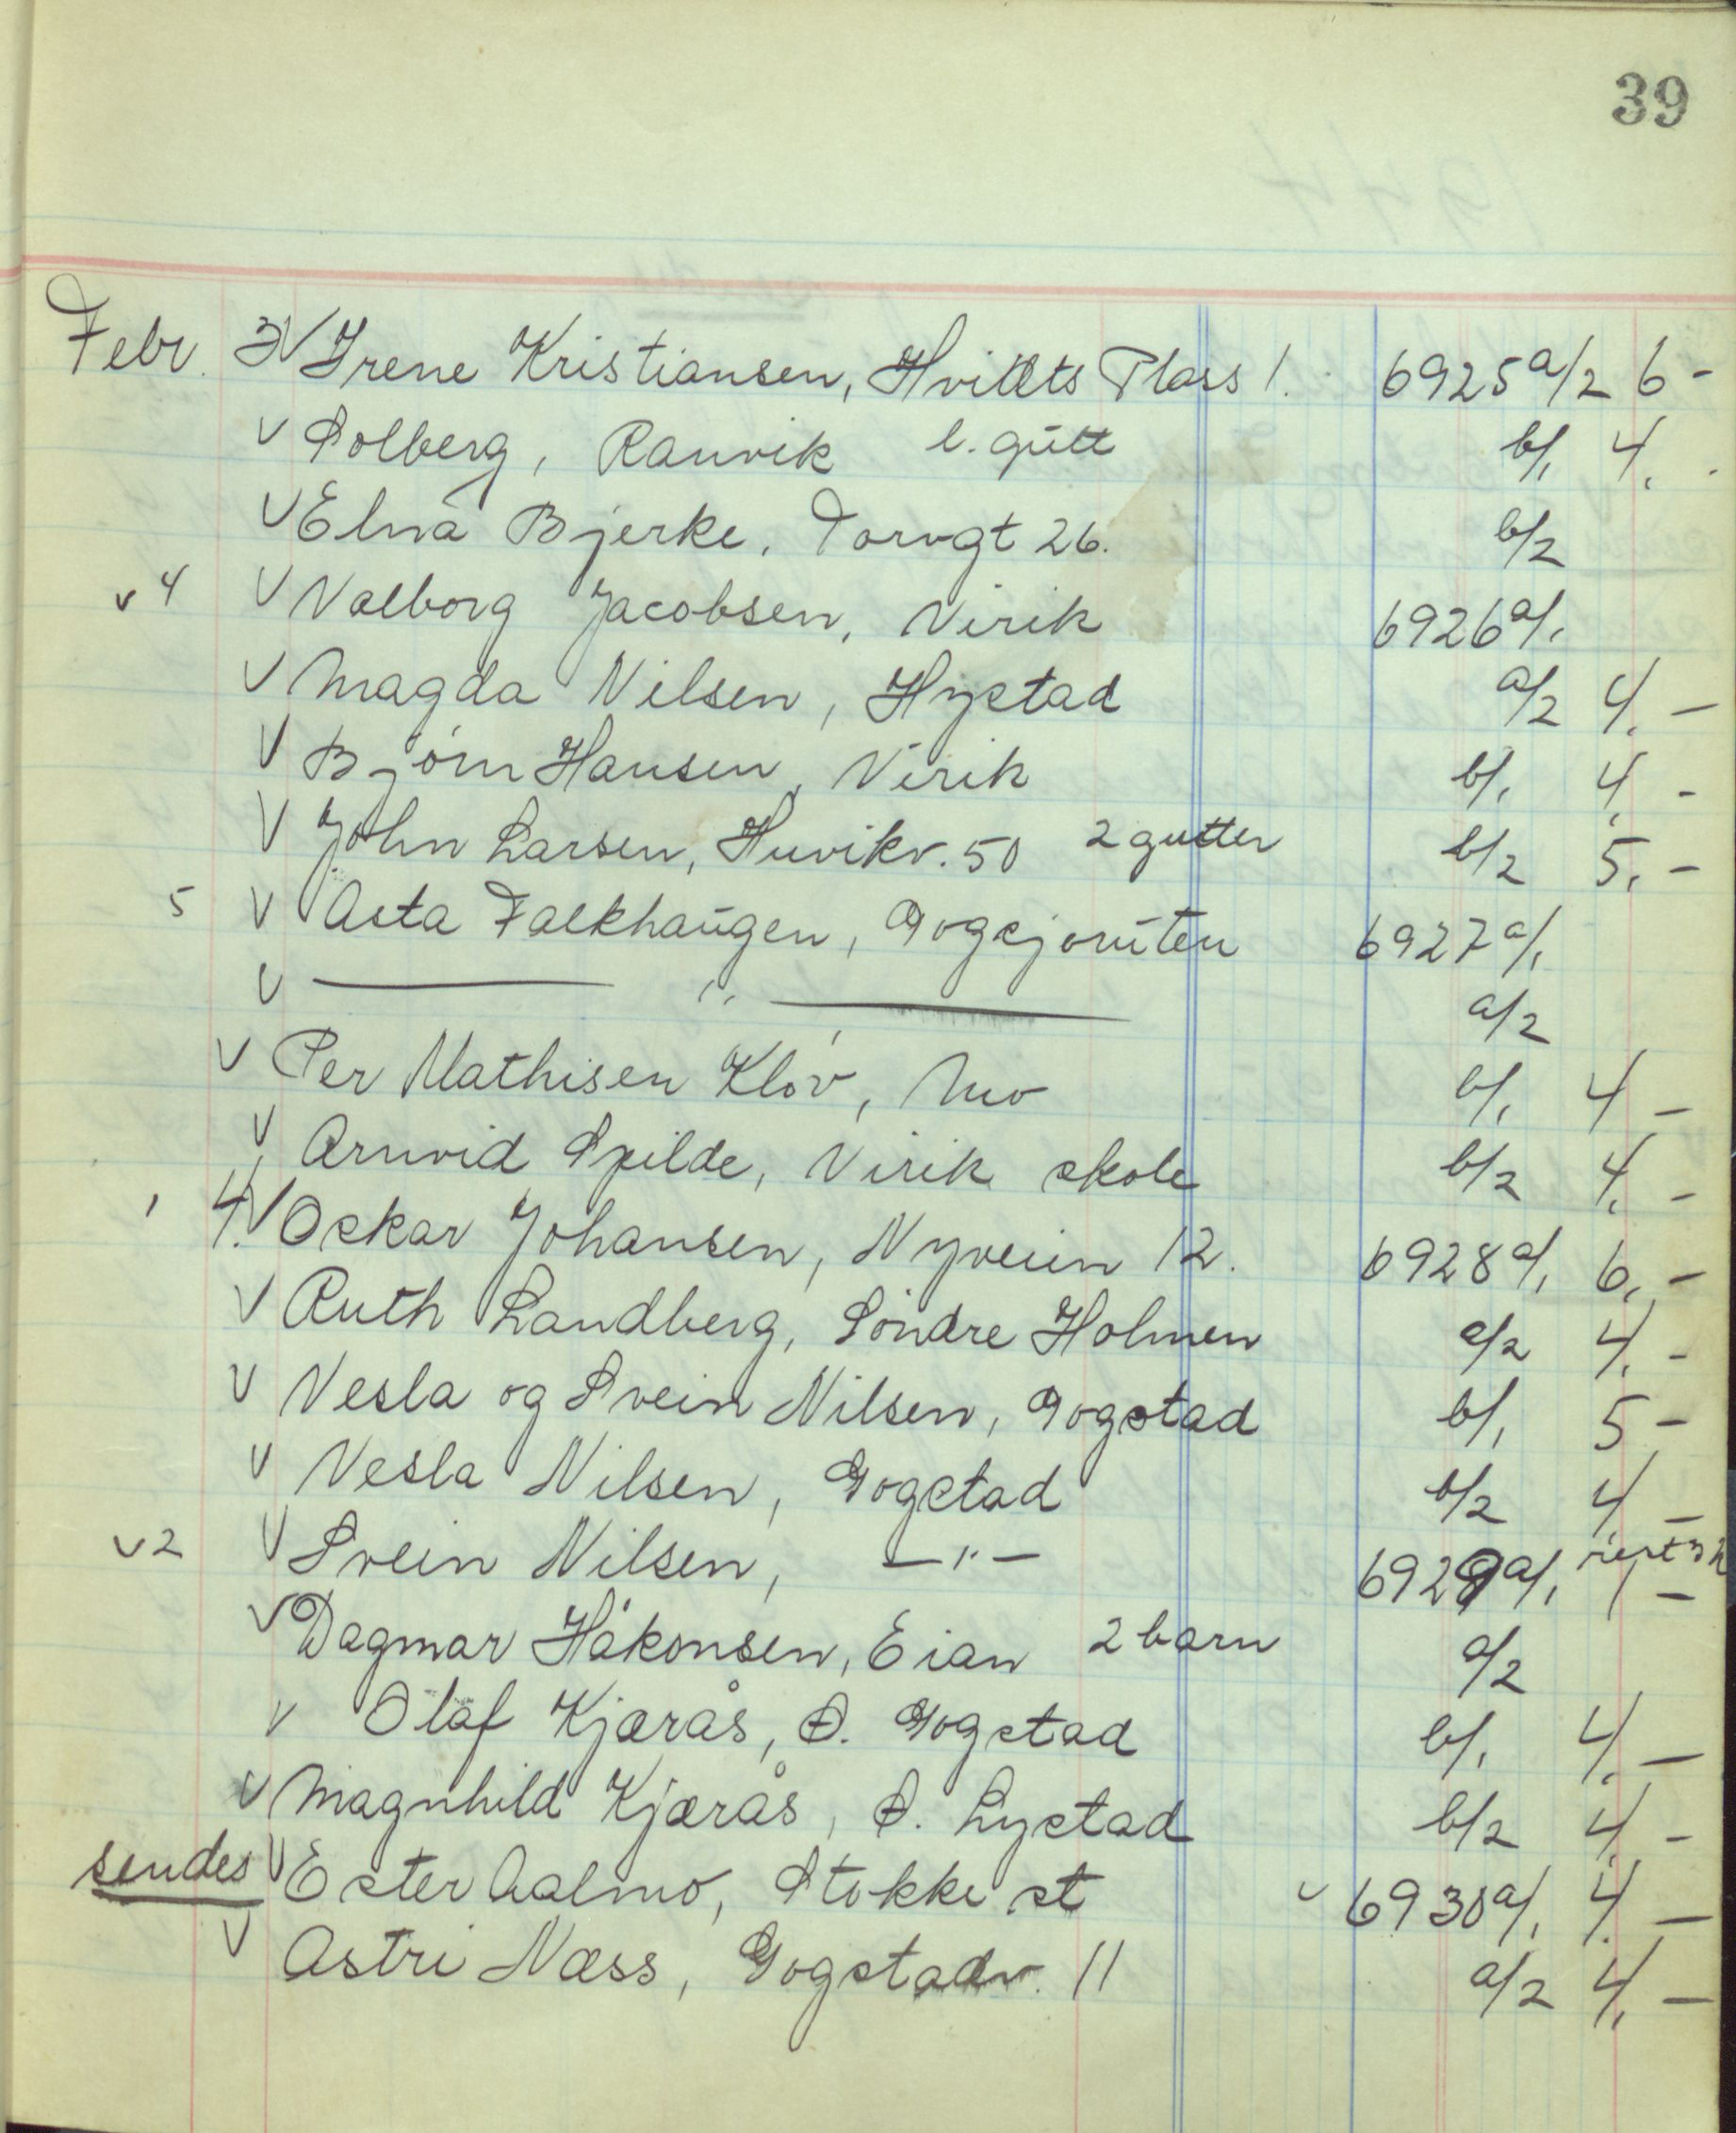 39
Febr. 3 V Irene Kristiansen, Hvidts Plass 1. 6925 a/2 6 -
V Solberg, Ranvik l. gutt b/1 4,
V Elna Bjerke, Torvgt 26. b/2
v 4 V Valborg Jacobsen, Virik 6926 a/1
V Magda Nilsen, Hystad a/2 4, -
V Bjørn Hansen, Virik b/1 4, -
V John Larsen, Huvikv. 50 2 gutter b/2 5, -
5 V Asta Falkhaugen, Gogsjoruten 6927 a/1
V — " — a/2
V Per Mathisen Kløv, Mo b/1 4 -
V Arnvid Spilde, Virik skole b/2 4, -
1 4. V Oskar Johansen, Nyveien 12. 6928 a/1 6, -
V Ruth Landberg, Söndre Holmen a/2 4, -
V Vesla og Svein Nilsen, Gogstad b/1 5 -
V Vesla Nilsen, Gogstad b/2 4, -
v 2 V Svein Nilsen, — " — 6929 a/1 rest 3 1 -
V Dagmar Håkonsen, Eian 2 barn a/2
V Olaf Kjærås, Ø. Gogstad b/1 4, -
V Magnhild Kjærås, Ø. Lystad b/2 4, -
sendes V Ester Aalmo, Stokke st v 6930 a/1 4, -
V Astri Næss, Gogstadv. 11 a/2 4, -